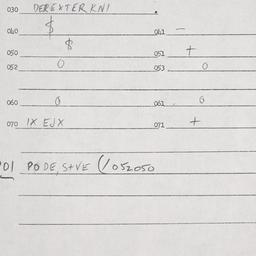 030 DEREXTERKNI .
040 $ 041 —
$
050 051 +
052 0 053 0
060 0 061 0
070 IX EJX 071 +
01 PODE, S+VE (/052050